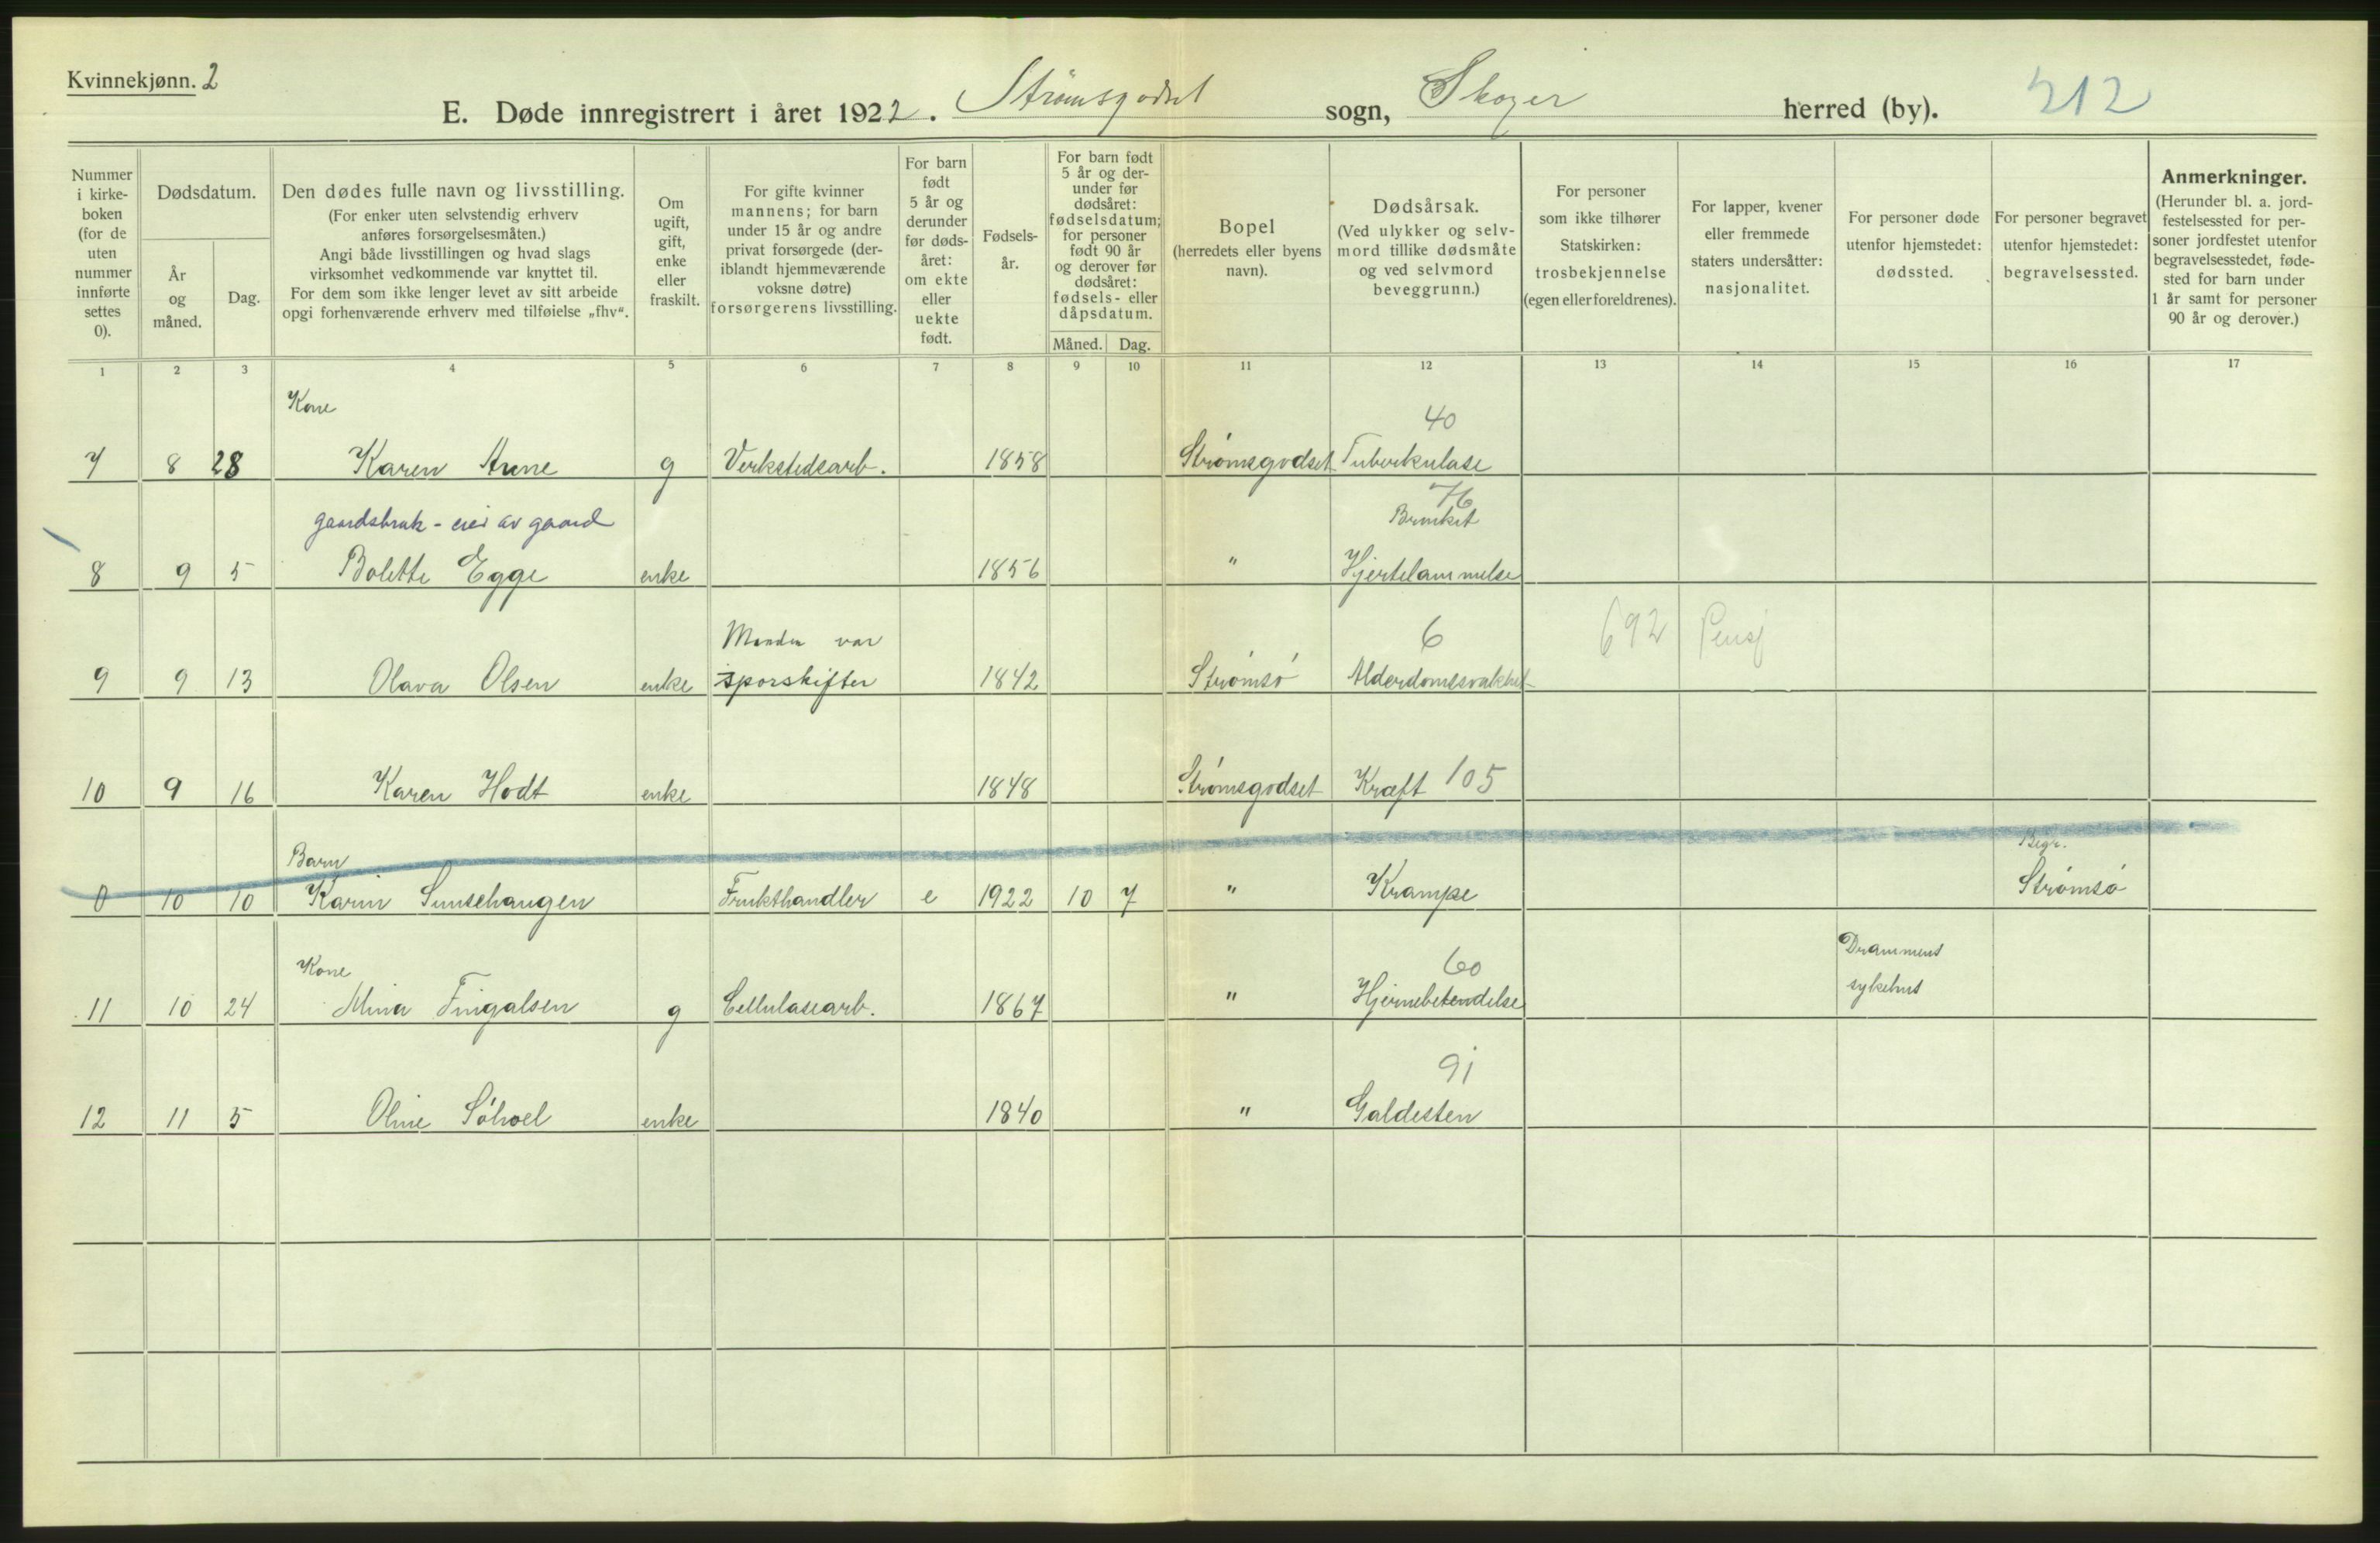 Kvinnekjønn. 2
E. Døde innregistrert i året 1922. Strømsgodset sogn, Skoger herred (by). 212
Nummer i kirke-boken (for de uten nummer innførte settes 0).
Dødsdatum.
År og måned.
Dag.
Den dødes fulle navn og livsstilling.
(For enker uten selvstendig erhverv
anføres forsørgelsesmåten.)
Angi både livsstillingen og hvad slags
virksomhet vedkommende var knyttet til.
For dem som ikke lenger levet av sitt arbeide
opgi forhenværende erhverv med tilføielse „fhv“.
Om ugift, gift, enke eller fraskilt.
For gifte kvinner
mannens; for barn
under 15 år og andre
privat forsørgede (der-
iblandt hjemmeværende
voksne døtre)
forsørgerens livsstilling.
For barn født 5 år og derunder før døds-året: om ekte eller uekte født.
Fødsels-år.
For barn født
5 år og der-
under før
dødsåret:
fødselsdatum;
for personer
født 90 år
og derover før
dødsåret:
fødsels- eller
dåpsdatum.
Måned. Dag.
Bopel
(herredets eller byens
navn).
Dødsårsak.
(Ved ulykker og selv-
mord tillike dødsmåte
og ved selvmord
beveggrunn.)
For personer
som ikke tilhører
Statskirken:
trosbekjennelse
(egen eller foreldrenes).
For lapper, kvener
eller fremmede
staters undersåtter:
nasjonalitet.
For personer døde
utenfor hjemstedet:
dødssted.
For personer begravet
utenfor hjemstedet:
begravelsessted.
Anmerkninger.
(Herunder bl. a. jord-
festelsessted for per-
soner jordfestet utenfor
begravelsesstedet, føde-
sted for barn under
1 år samt for personer
90 år og derover.)
1 2 3 4 5 6 7 8 9 10 11 12 13 14 15 16 17
Kone
40
7 8 28 Karen Aune g Verkstedsarb. 1858 Strømsgodset Tuberkulose
76
gaardsbruk - eier av gaard Brusket
8 9 5 Bolette Egge enke 1856 " Hjertelammelse
Manden var 6 692 Pensj
9 9 13 Olava Olsen enke sporskifter 1842 Strømsø Alderdomssvakhet
10 9 16 Karen Hodt enke 1848 Strømsgodset Kræft 105
Barn Begr.
0 10 10 Karin Sunsehaugen Frukthandler e 1922 10 7 " Krampe Strømsø
Kone 60 Drammens
sykehus
11 10 24 Mina Fingalsen g Cellulosearb. 1867 " Hjernebetendelse
91
12 11 5 Oline Sóhoel enke 1840 " Galdesten